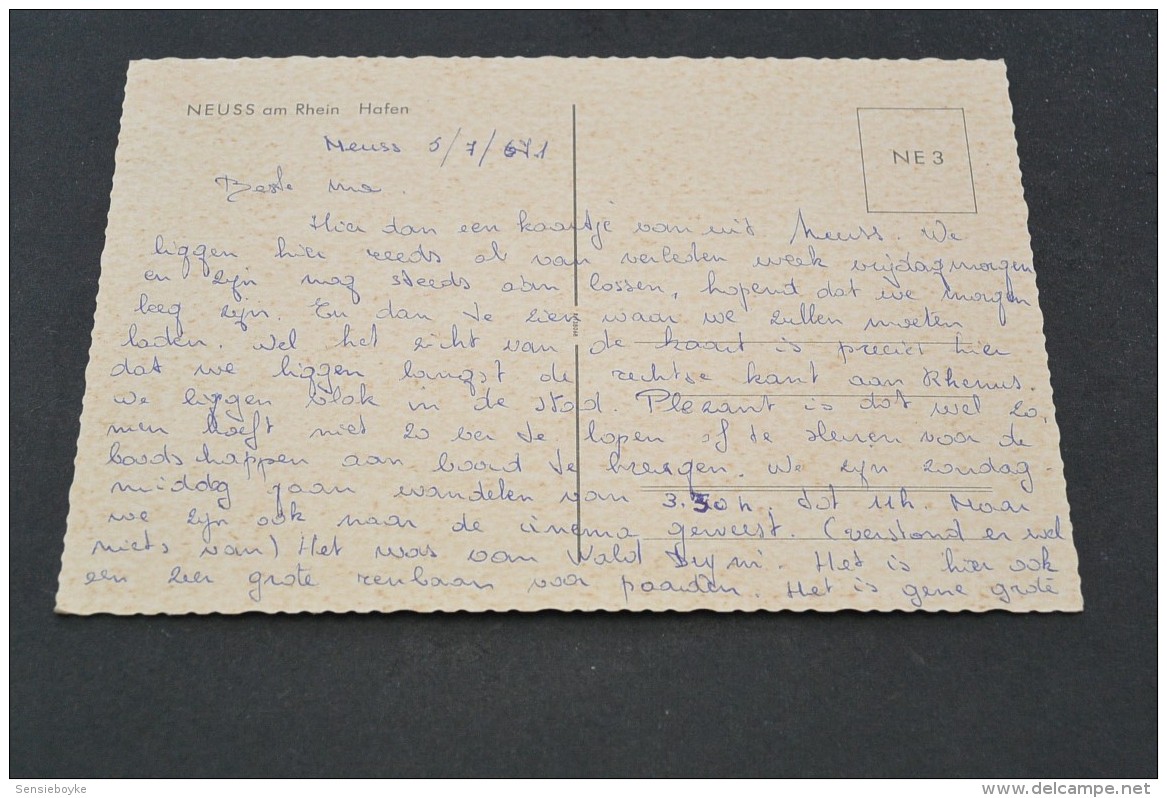 NEUSS am Rhein Hafen
NE 3
Neuss 5/7/671
Beste ma.
Hier dan een kaartje van uit Neuss. We
liggen hier reeds al van verleden week vrijdagmorgen
en zijn nog steeds aan lossen, hopend dat we morgen
leeg zijn. En dan te zien waar we zullen moeten
laden. Wel het zicht van de kaart is precies hier
dat we liggen langst de rechtse kant aan Rhenus.
We liggen vlak in de stad. Plezant is dat wel zo,
men hoeft niet zo ver te lopen of te sleuren voor de
boodschappen aan boord te brengen. We zijn zondag
middag gaan wandelen van 3.30h, tot 11h. Maar
we zijn ook naar de cinema geweest. (verstond er wel
niets van) Het was van Wald Dyni. Het is hier ook
een zeer grote renbaan voor paarden. Het is gene grote
Sensieboyke
delcampe.net